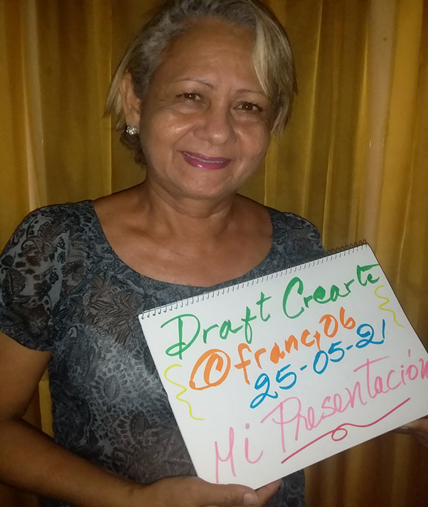 Draft Crearte
@francy06
25-05-21
Mi Presentación